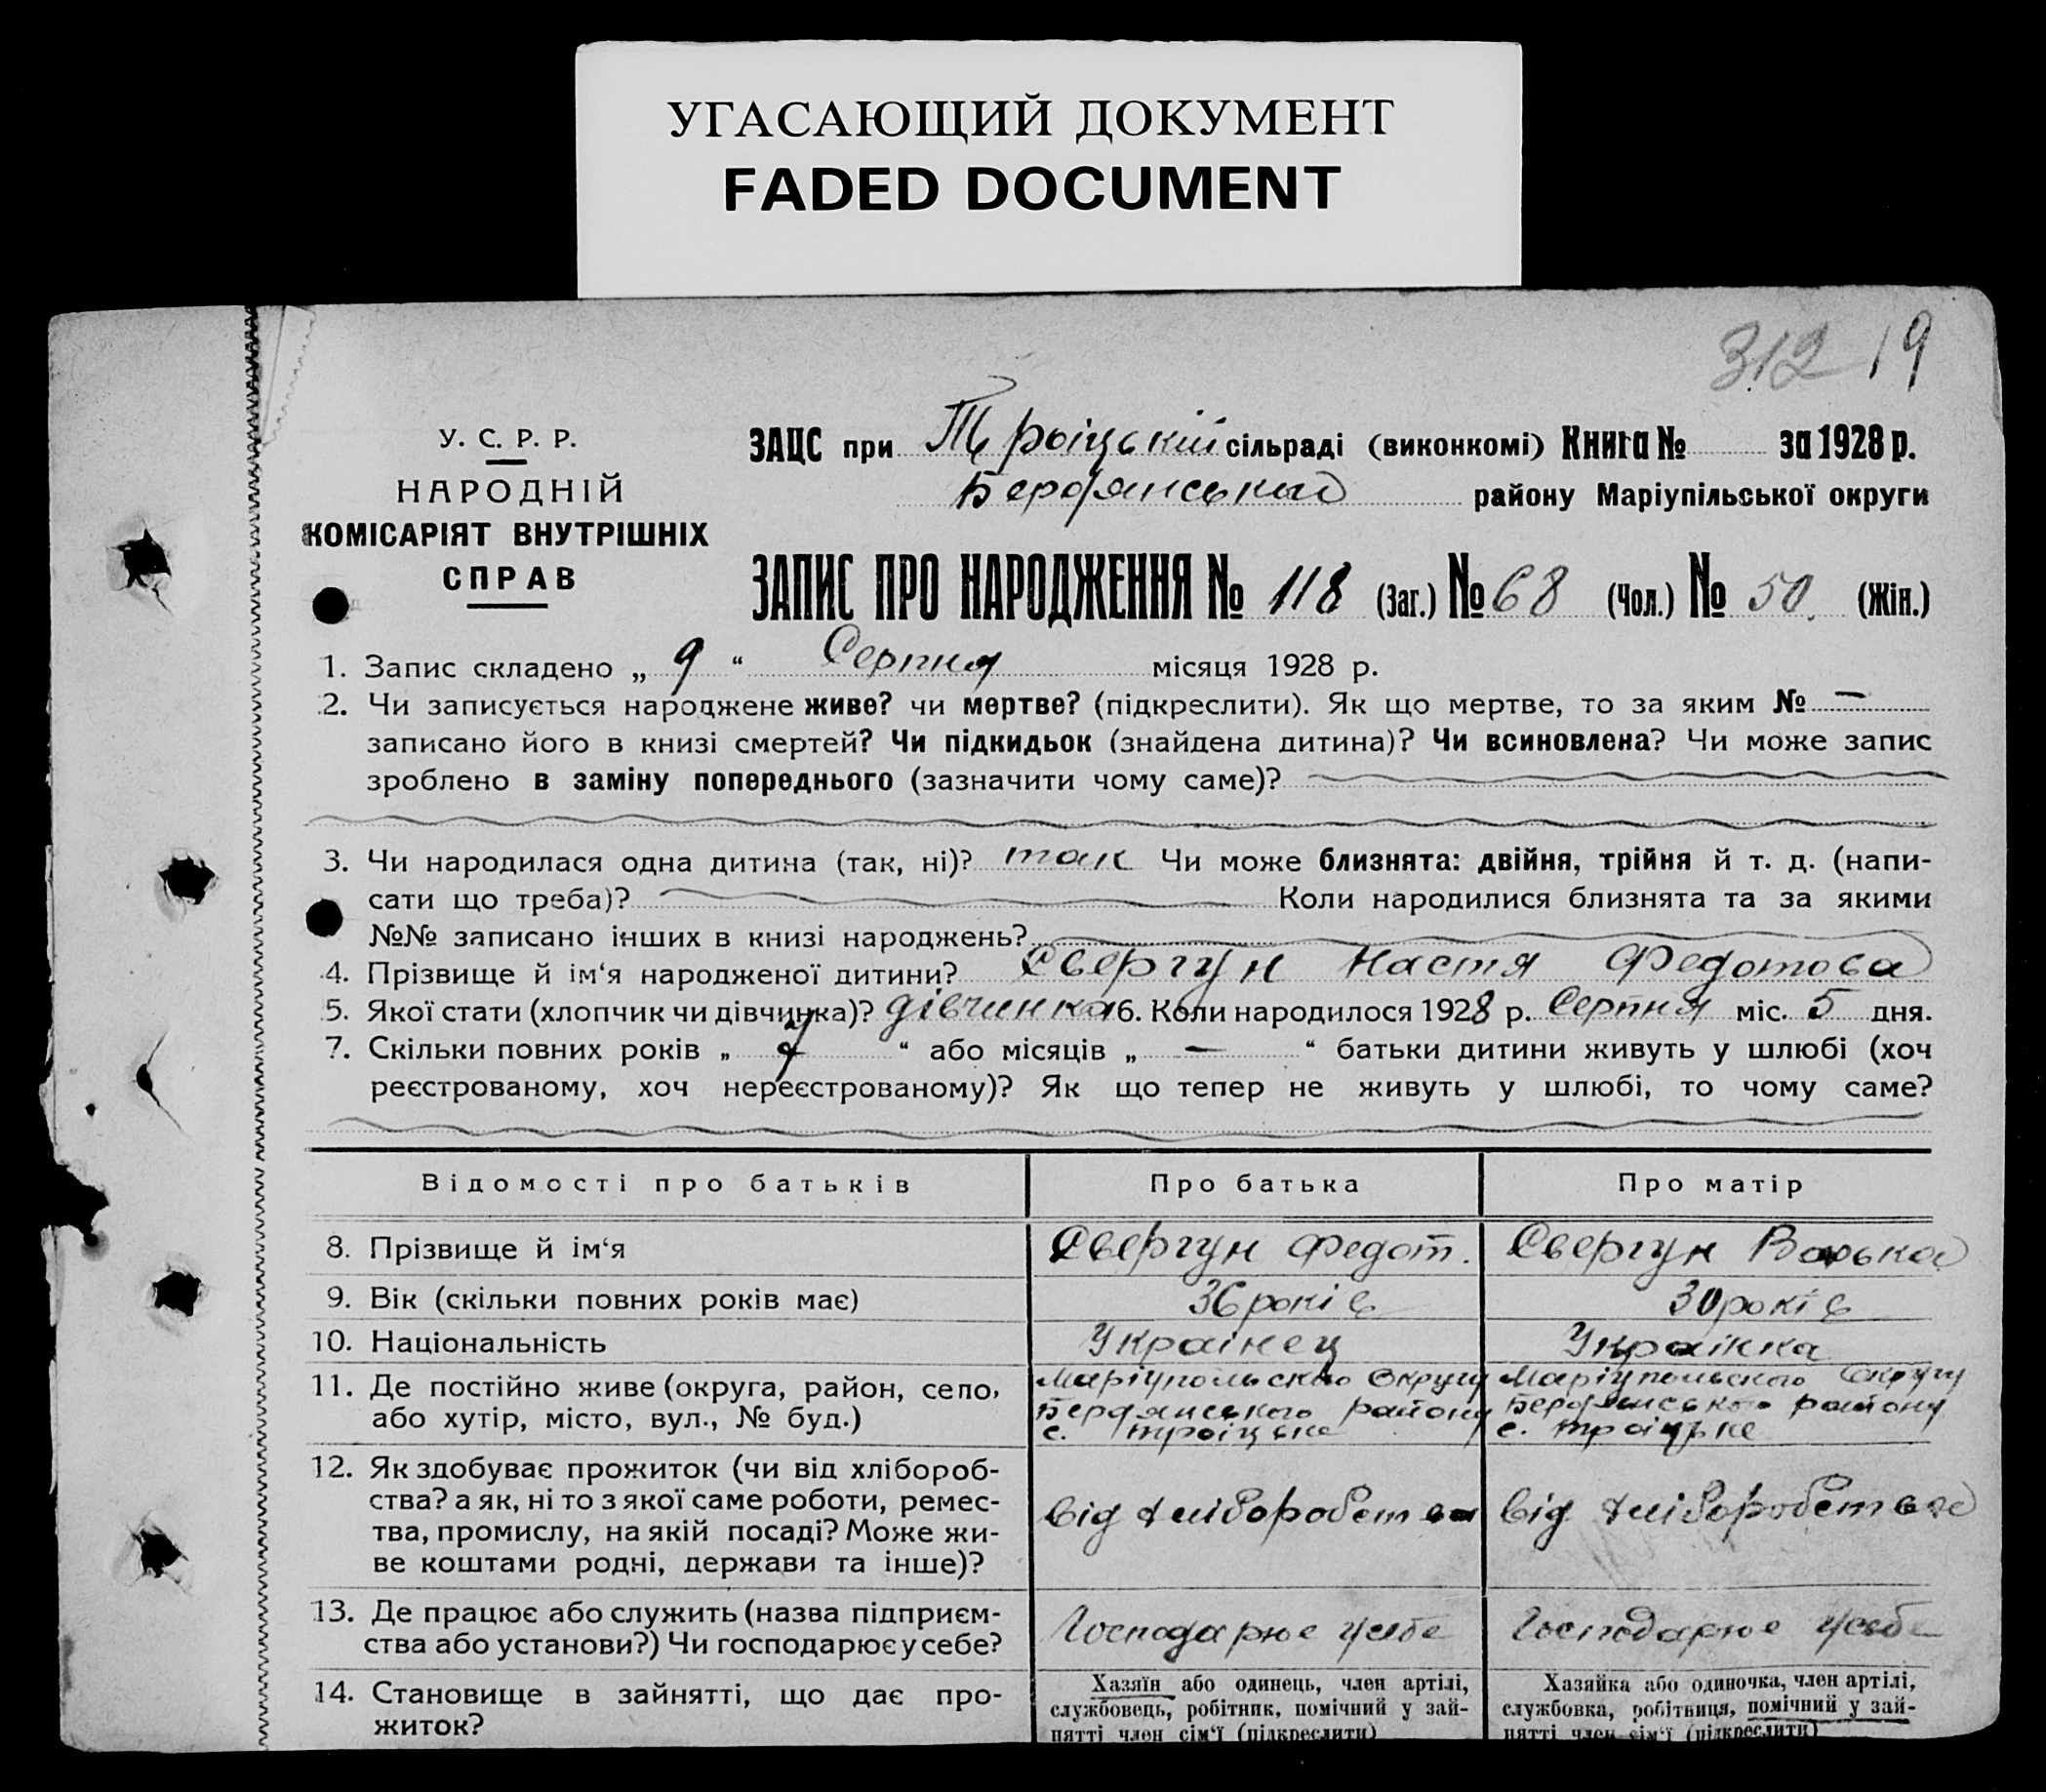 УГАСАЮЩИЙ ДОКУМЕНТ
FADED DOCUMENT
312 19
У. С. Р. Р.
НАРОДНІЙ
КОМІСАРІЯТ ВНУТРІШНІХ
СПРАВ
ЗАЦС при Троіцькій сільраді (виконкомі) Книга № за 1928 р.
Бердянський району Маріупільської округи
ЗАПИС ПРО НАРОДЖЕННЯ № 118 (Заг.) № 68 (Чол.) № 50 (Жін.)
1. Запис складено „ 9 “ Серпня місяця 1928 р.
2. Чи записується народжене живе? чи мертве? (підкреслити). Як що мертве, то за яким № —
записано його в книзі смертей? Чи підкидьок (знайдена дитина)? Чи всиновлена? Чи може запис
зроблено в заміну попереднього (зазначити чому саме)?
3. Чи народилася одна дитина (так, ні)? так Чи може близнята: двійня, трійня й т. д. (напи-
сати що треба)? Коли народилися близнята та за якими
№№ записано інших в книзі народжень?
4. Прізвище й ім‘я народженої дитини? Свергун Настя Федотова
5. Якої стати (хлопчик чи дівчинка)? дівчинка 6. Коли народилося 1928 р. Серпня міс. 5 дня.
7. Скільки повних років „ 7 “ або місяців „ — “ батьки дитини живуть у шлюбі (хоч
реєстрованому, хоч нереєстрованому)? Як що тепер не живуть у шлюбі, то чому саме?
Відомості про батьків Про батька Про матір
8. Прізвище й ім‘я Свергун Федот. Свергун Варька
9. Вік (скільки повних років має) 36 років 30 років
10. Національність Украінец Украінка
11. Де постійно живе (округа, район, село, Маріупольского Округу Маріупольского Округу
або хутір, місто, вул., № буд.) Бердянського району Бердянського району
с. Троіцьке с. Троіцьке
12. Як здобуває прожиток (чи від хлібороб-
ства? а як, ні то з якої саме роботи, ремес- від хліборобства від хліборобства
тва, промислу, на якій посаді? Може жи-
ве коштами родні, держави та інше)?
13. Де працює або служить (назва підприєм-
ства або установи?) Чи господарює у себе? Господарює у себе Господарює у себе
14. Становище в зайнятті, що дає про- Хазяїн або одинець, член артілі, Хазяйка або одиночка, член артілі,
житок? службовець, робітник, помічний у зай- службовка, робітниця, помічний у зай-
нятті член сім‘ї (підкреслити) нятті член сім‘ї (підкреслити)